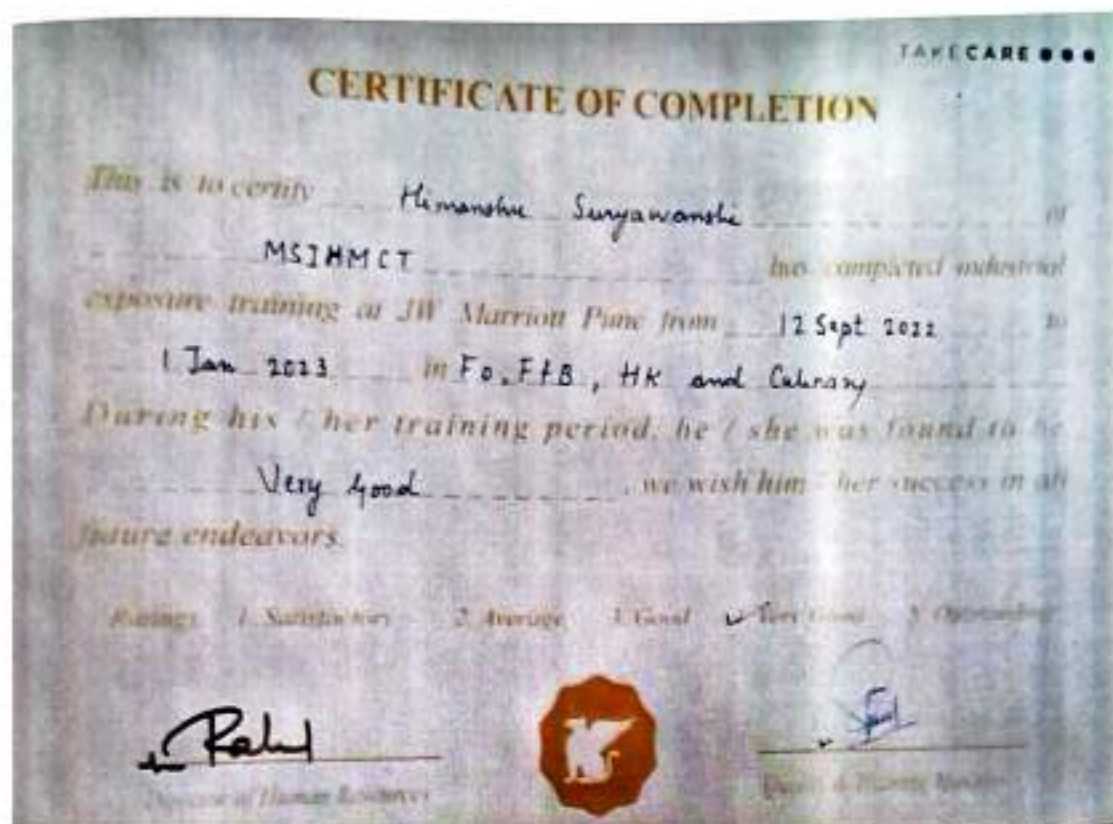 TAKECARE
CERTIFICATE OF COMPLETION
This is to certify Himanshu Suryawanshi of
MSIHMCT has completed industrial
exposure training at JW Marriott Pune from 12 Sept 2022 to
1 Jan 2023 in Fo, F&B, HK and Culinary
During his / her training period, he / she was found to be
Very Good , we wish him / her success in all
future endeavors.
Ratings 1. Satisfactory 2. Average 3. Good ✓ Very Good 5. Outstanding
Rahul
Director of Human Resources